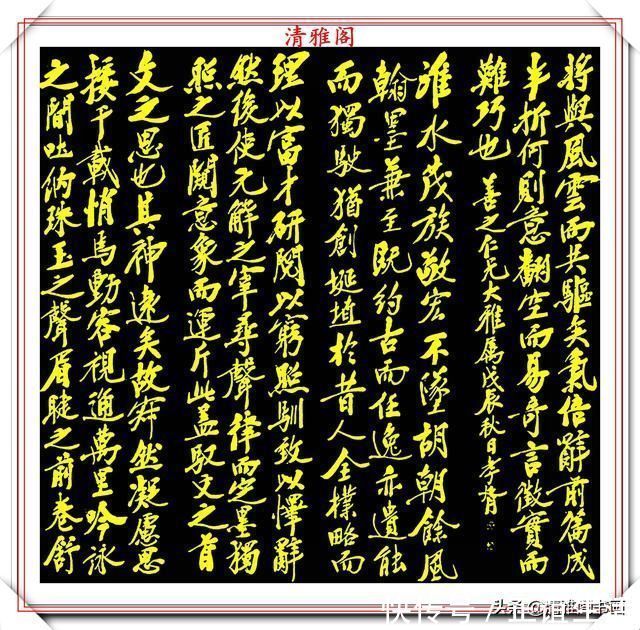 清雅阁
将與風雲而共驅矣氣倍辭前篇成
半折何則意翻空而易奇言徵實而
難巧也 善之仁兄大雅属戊辰秋日孝胥
淮水茂族敬宏不墜胡朝餘風
翰墨兼至既約古而任逸亦遺能
而獨駛猶創埏埴於昔人全樸略而
理以富才研閱以窮照馴致以懌辭
然後使元解之宰尋聲律而定墨獨
照之匠闚意象而運斤此盖馭文之首
文之思也其神遠矣故寂然凝慮思
接千載悄焉動容視通萬里吟詠
之間吐納珠玉之聲眉睫之前卷舒
头条
快传号 /